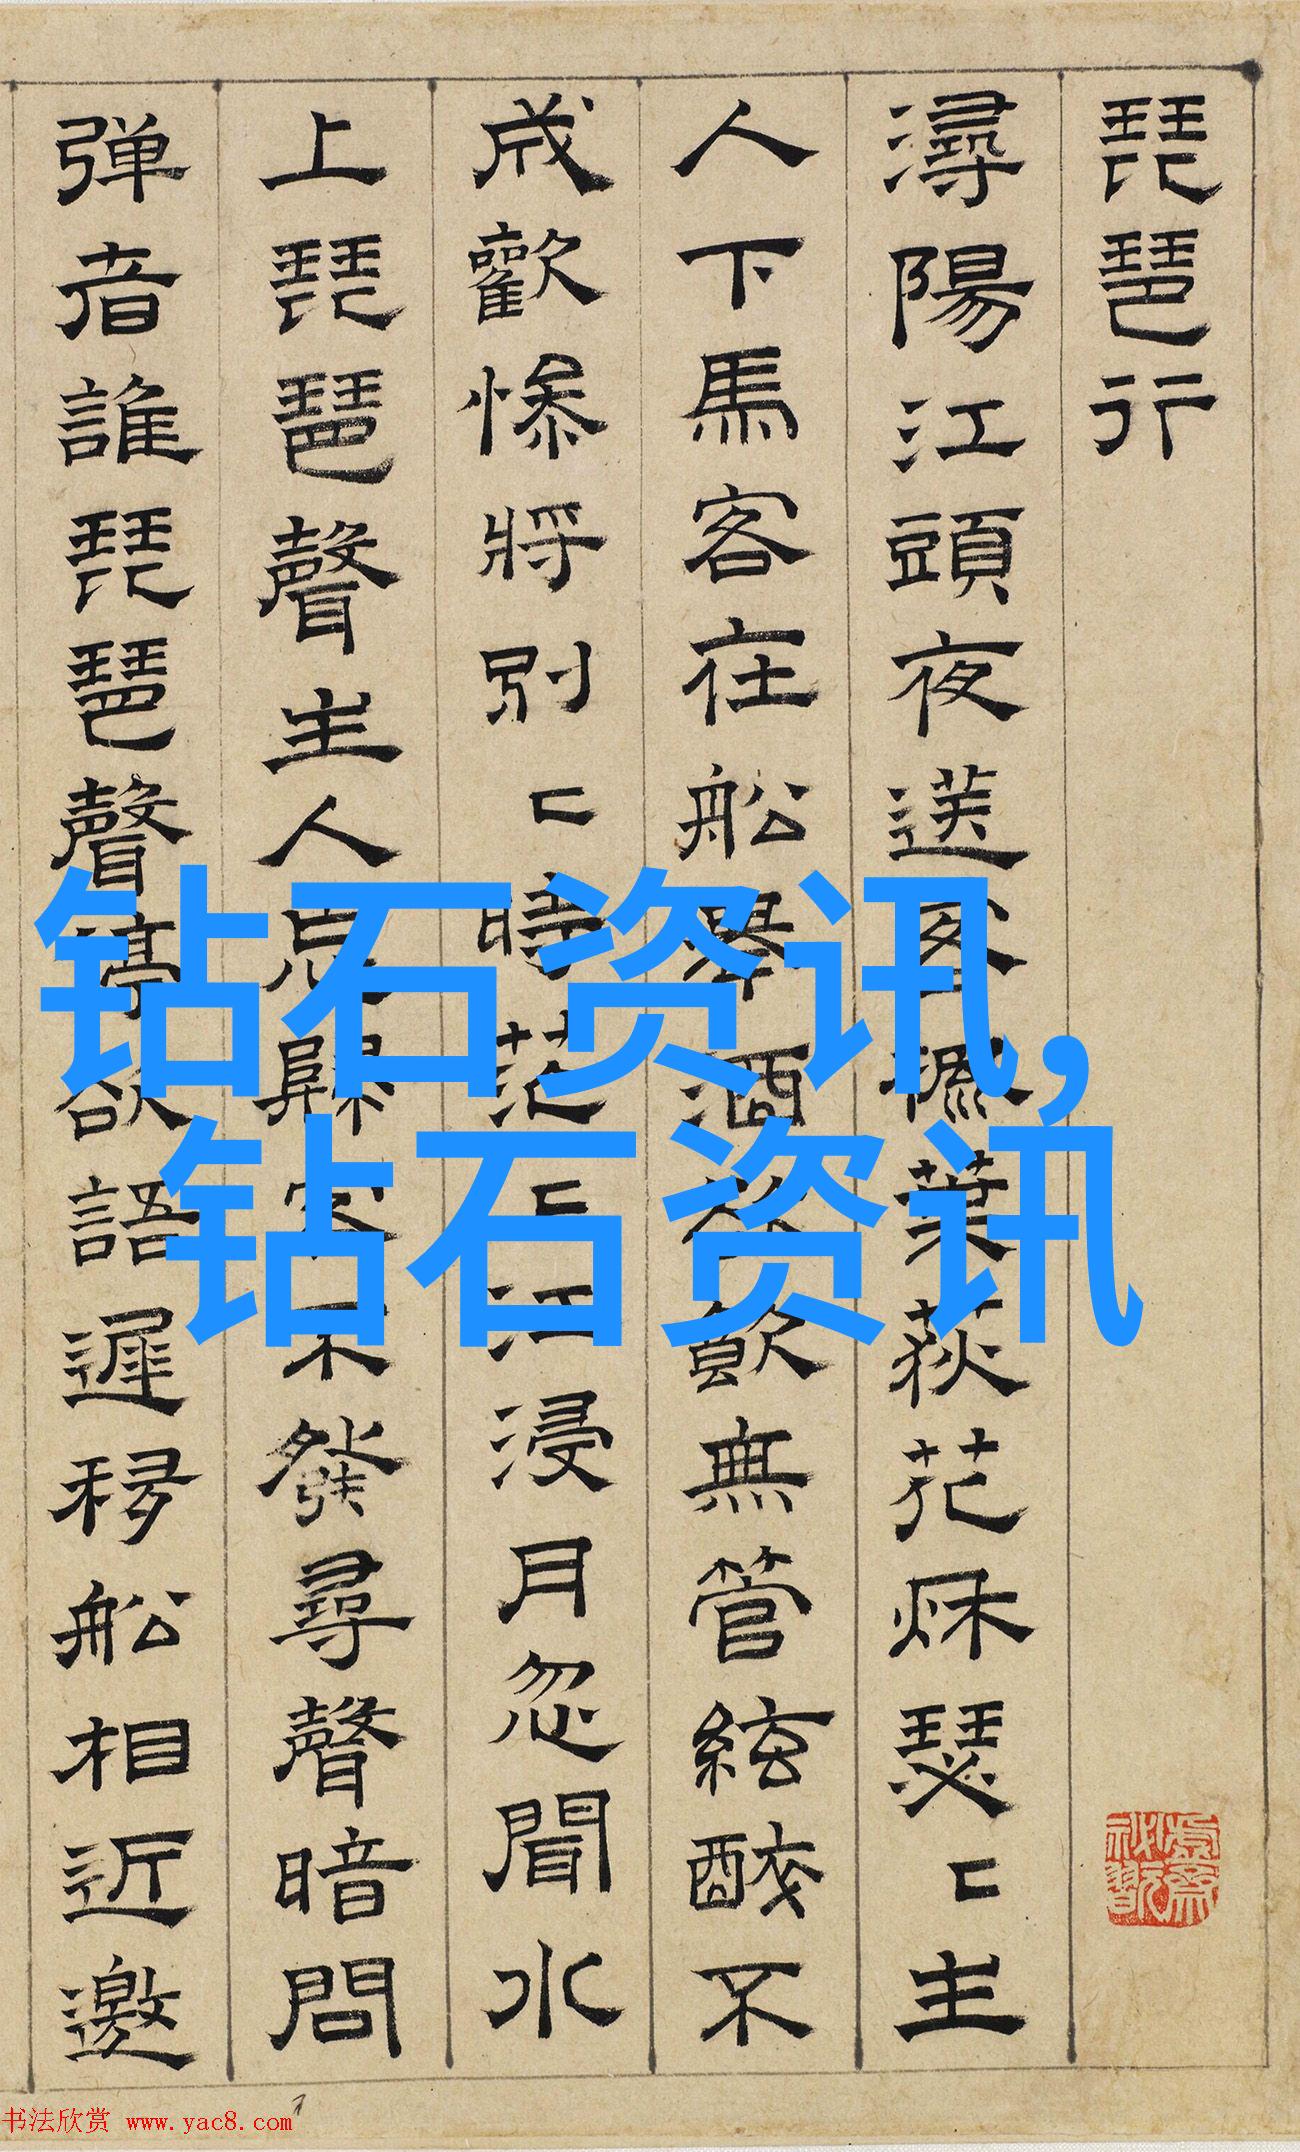 琵琶行
潯陽江頭夜送客楓葉荻花秌瑟〻主
人下馬客在船舉酒欲飲無管絃醉不
成歡慘將別〻時茫〻江浸月忽聞水
上琵琶聲主人忘歸客不發尋聲暗問
彈者誰琵琶聲停欲語遲移船相近邀
钻石资讯,
钻石资讯
书法欣赏 www.yac8.com